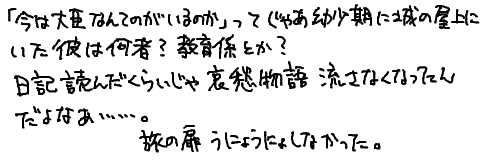 「今は大臣なんてのがいるのか」って じゃあ幼少期に城の屋上に
いた彼は何者？教育係とか？
日記読んだくらいじゃ哀愁物語 流さなくなってん
だよなあ……。
旅の扉 うにょうにょしなかった。